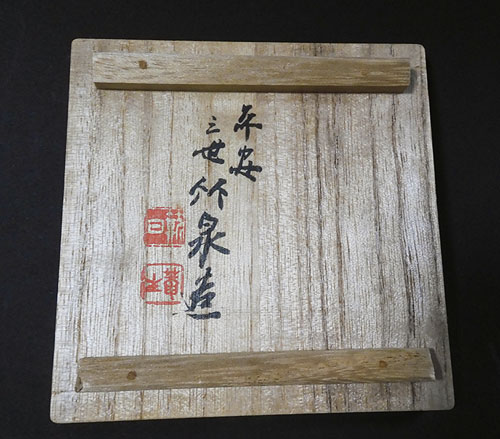 平安
三世竹泉造